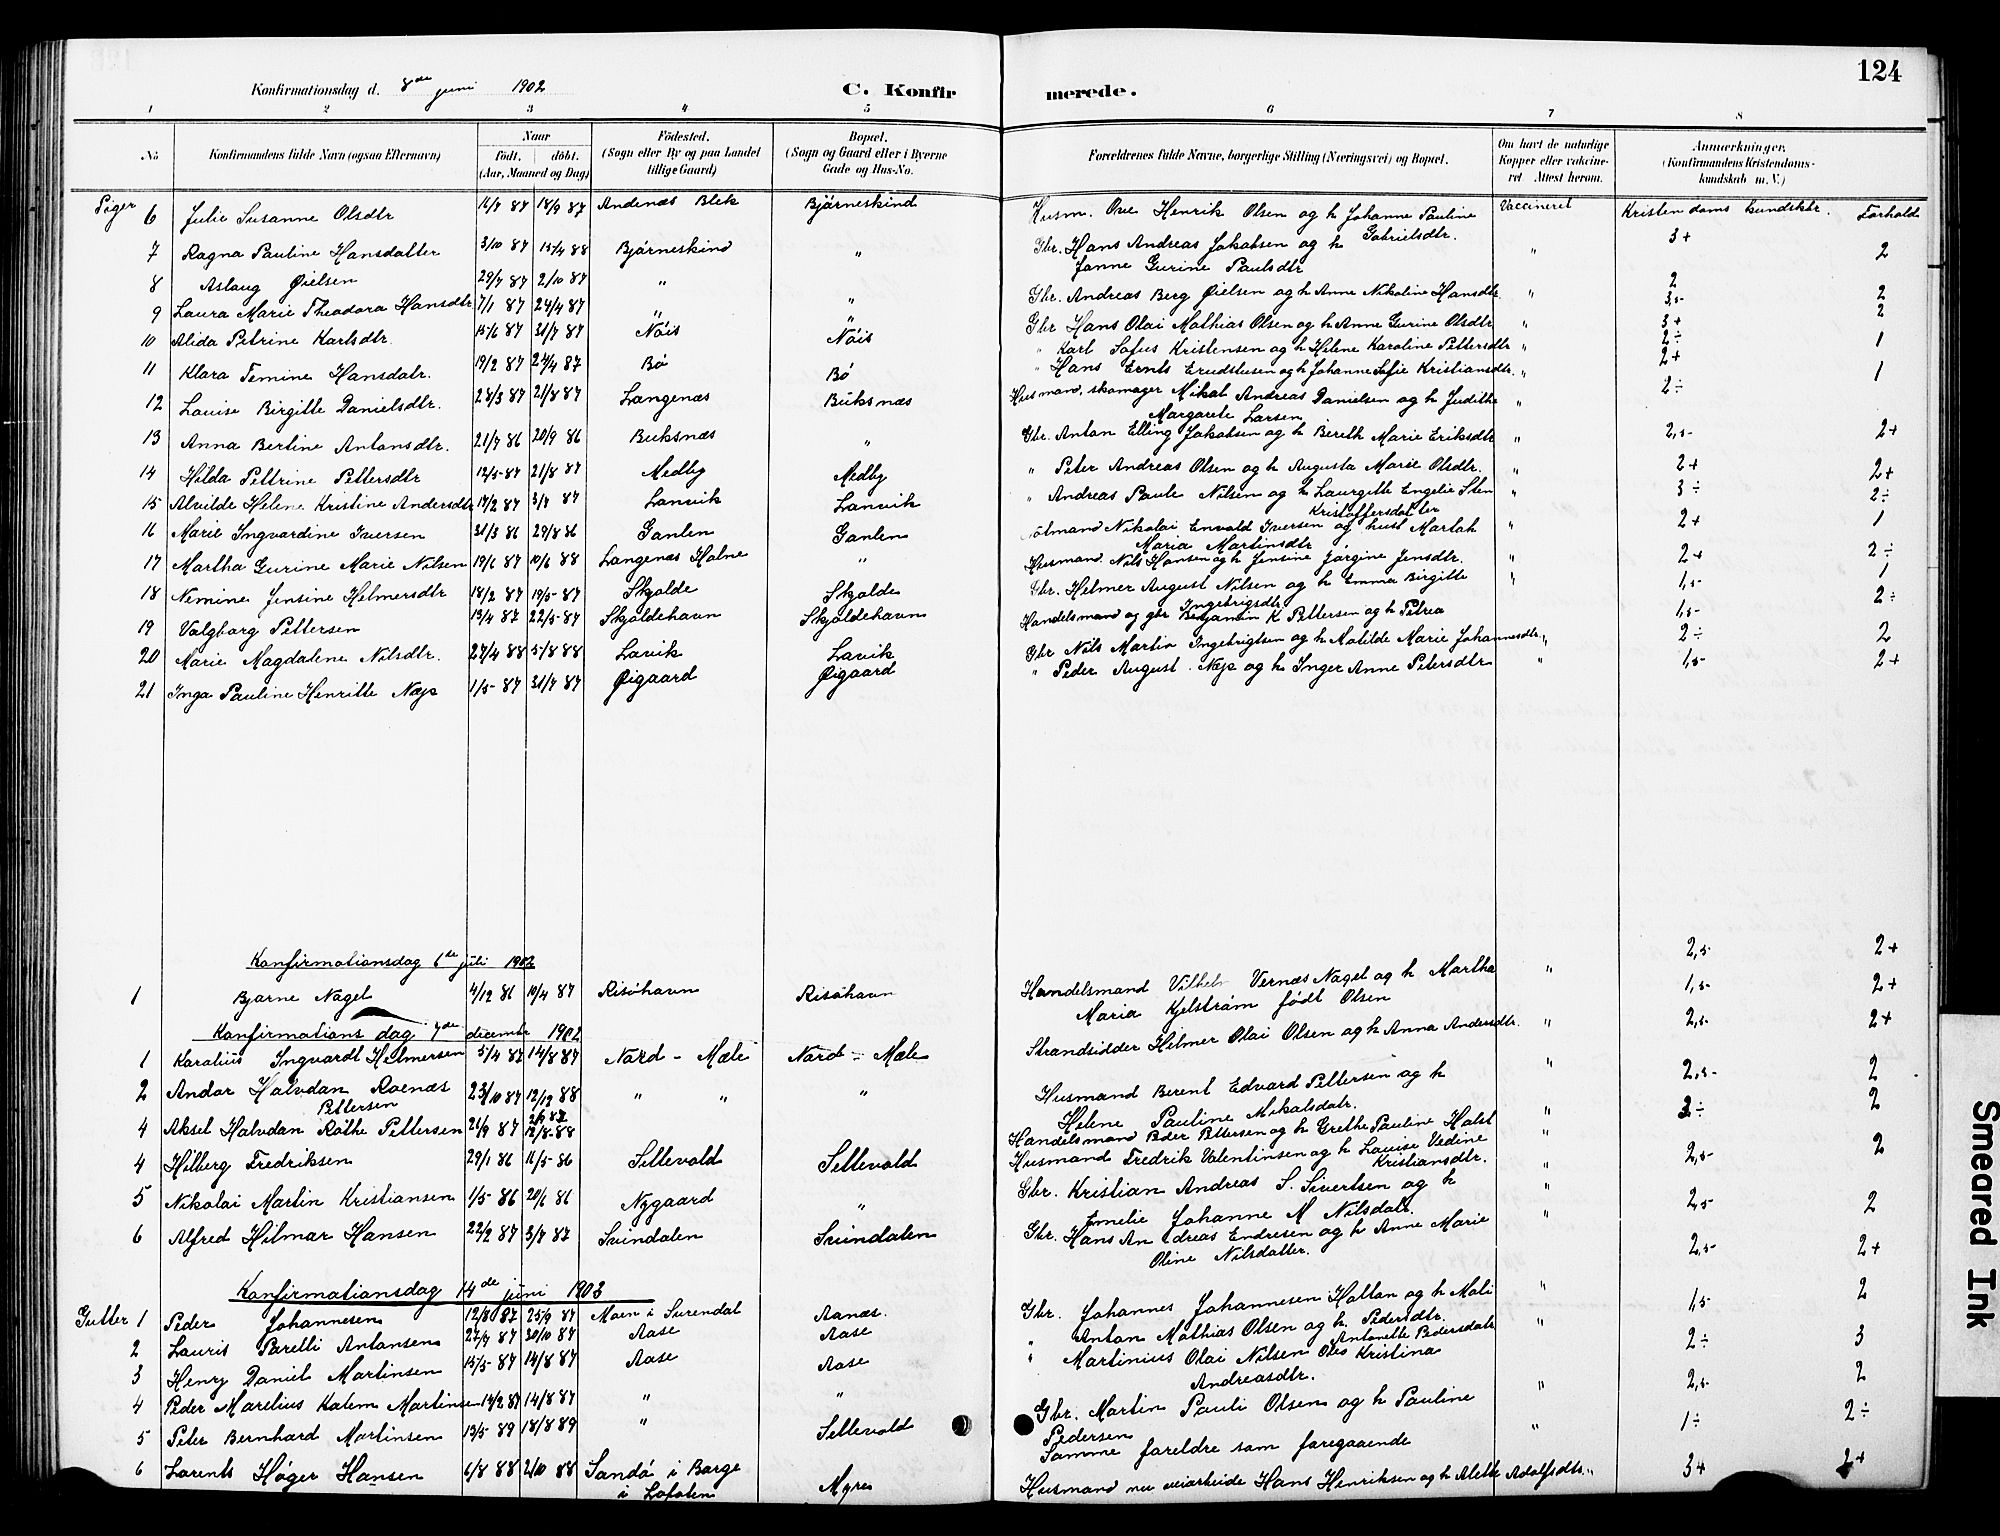 124
Konfirmationsdag d. 8de juni 1902
C. Konfirmerede.
1 2 3 4 5 6 7 8
No
Konfirmandens fulde Navn (ogsaa Efternavn)
Naar
födt. döbt.
(Aar, Maaned og Dag)
Födested.
(Sogn eller By og paa Landet
tillige Gaard)
Bopæl.
(Sogn og Gaard eller i Byerne
Gade og Hus-No.
Forældrenes fulde Navne, borgerlige Stilling (Næringsvei) og Bopæl.
Om havt de naturlige
Kopper eller vaccine-
ret. Attest herom.
Anmærkninger.
(Konfirmandens Kristendoms-
kundskab m. V.)
Piger 6 Julie Susanne Olsdtr 18/9 87 Andenæs Blek Bjørneskind Husm. Ove Henrik Olsen og h Johanne Pauline Gabrielsdtr. Vaccineret Kristendoms kundskbr. Forhold
3+
7 Ragna Pauline Hansdatter 3/10 87 15/4 88 Bjørneskind " Gbr. Hans Andreas Jakobsen og h " 2
Janne Gurine Paulsdtr
8 Aslaug Øielsen 29/7 87 2/10 87 " " Gbr. Andreas Berg Øielsen og h Anne Nikoline Hansdtr. " 2 2
9 Laura Marie Theodora Hansdtr 7/1 87 24/4 87 " Gbr Hans Olai Mathias Olsen og h Anne Gurine Olsdtr " 2
10 Alida Petrine Karlsdtr. 31/7 87 Nöis Nöis " Karl Sofus Kristensen og h Helene Karoline Pettersdtr " 1
11 Klara Temine Hansdatr. 19/2 87 24/4 87 Bö Bö " Hans Ernts og h Johanne Sofie Kristiansdtr. " 1
12 Louise Birgitte Danielsdtr. 21/8 87 Langenæs Buksnæs Husmand, skomager Mikal Andreas Danielsen og h Judithe "
Margarete Larsen
13 Anna Bertine Antonsdtr. 21/7 86 20/9 86 Buksnæs " Gbr. Anton Elling Jakobsen og h Bereth Marie Eriksdtr " 2,5- 2+
14 Hilda Pettrine Pettersdtr 12/5- 87 21/8 87 Medby Medby " Peter Andreas Olsen og h Augusta Marie Olsdtr. " 2+ 2+
15 Alvilde Helene Kristine Andersdtr 17/2 87 3/7 87 Lanvik Lanvik " Andreas Paule Nilsen og h Laurgitte Engelie Sten " 3÷ 2÷
Kristoffersdatter
16 Marie Ingvardine Iversen 31/3 86 29/8 86 Ganlen Ganlen Nikolai Envald Iversen og hust Martah " 2+ 1
Maria Martinsdtr
17 Martha Gurine Marie Nilsen 19/6 87 10/6 88 Langenæs Holne " Husmand. Nils Hansen og h Jensine Jørgine Jensdtr. " 2+ 2÷
18 Nemine Jensine Helmersdtr 18/2 87 19/5- 87 Skjolde Skjolde Gbr. Helmer August Nilsen og h Emma Birgitte " 1,5- 1
Ingebrigsdtr
19 Valgborg Pettersen 13/4 87 22/5-87 Skjoldehavn Skjoldehavn Handelsmand og gbr Benjamin K Pettersen og h Petrea 1,5- 2÷
20 Marie Magdalene Nilsdtr. 27/4 88 5/8 88 Lavik Lavik Gbr Nils Martin Ingebrigtsen og h Matilde Marie Johannesdtr " 2÷ 2
21 Inga Pauline Henritte Næs 1/5- 87 31/7 87 Øigaard Øigaard " Peder August Næs og h Inger Anne Petersdtr " 1,5- 2+
Konfirmationsdag 6de juli 1902 2,5- 2+
1 Bjarne Nagel 4/12 86 10/4 87 Risöhavn Risöhavn Handelsmand Vilhelm Vernæs Nagel og h Martha " 1,5- 2+
Maria Kjelström født Olsen
Konfirmations dag 7de decembr 1902 2,5- 2+
1 Karolius Ingvardt Helmersen 5/4 87 14/8 87 Nord - Mæle Nord - Mæle Strandsidder Helmer Olai Olsen og h Anna Andersdtr. "
2 Andor Halvdan Roenæs 23/10 87 12/12 88 " " " Husmand Berent Edvard Pettersen og h " 2,5- 2
Pettersen Helene Pauline Mikalsdatr.
4 Aksel Halvdan Röthe Pettersen 21/9 87 12/8-88 Handelsmand Peder Pettersen og h Grethe Pauline Holst " 2÷ 2
4 Hilberg Fredriksen 29/1 86 16/5- 86 Sellevold Sellevold Husmand Fredrik Valentinsen og h Louise Vedine " 2,5- 2
Kristiansdtr.
5 Nikolai Martin Kristiansen 1/5- 86 20/6 86 Nygaard " Gbr. Kristian Andreas S. Sivertsen og h " 2,5- 2
Emelie Johanne M Nilsdatr.
6 Alfred Hilmar Hansen 22/2 87 3/7 87 Svindalen Svindalen Gbr. Hans Andreas Endresen og h Anne Marie " 2,5- 2+
Oline Nilsdatter.
Konfirmationsdag 14de juni 1903
Gutter 1 Peder Johannesen 12/8 87 25/9 87 Moen i Surendal Aanæs. Gbr. Johannes Johannesen Holtan og h Mali " 1,5- 2
Pedersdtr.
2 Lauris Parelli Antonsen 27/9 87 30/10 87 Aase Aase " Anton Mathias Olsen og h. " 2÷ 3
Antonette Pedersdatr
3 Henry Daniel Martinsen 15/5- 87 14/8 87 Aase Aase " Martinius Olai Nilsen Oles Kristina 2,5- 2
Andreasdtr.
4 Peder Marelius Kalem Martinsen 14/2 87 14/8 87 " " Gbr. Martin Pauli Olsen og h Pauline " 1÷ 2÷
Pedersen
5 Peter Bernhard Martinsen 13/5 89 18/8 89 " Sellevold Samme foreldre som foregaaende "
6 Larents Höger Hansen 6/8 88 2/10 88 Sandö i Borge Myre Husmand nu veiarbeide Hans Henriksen og h Alette Adolfsdtr. " 3+ 2+
i Lofoten
Smeared Ink